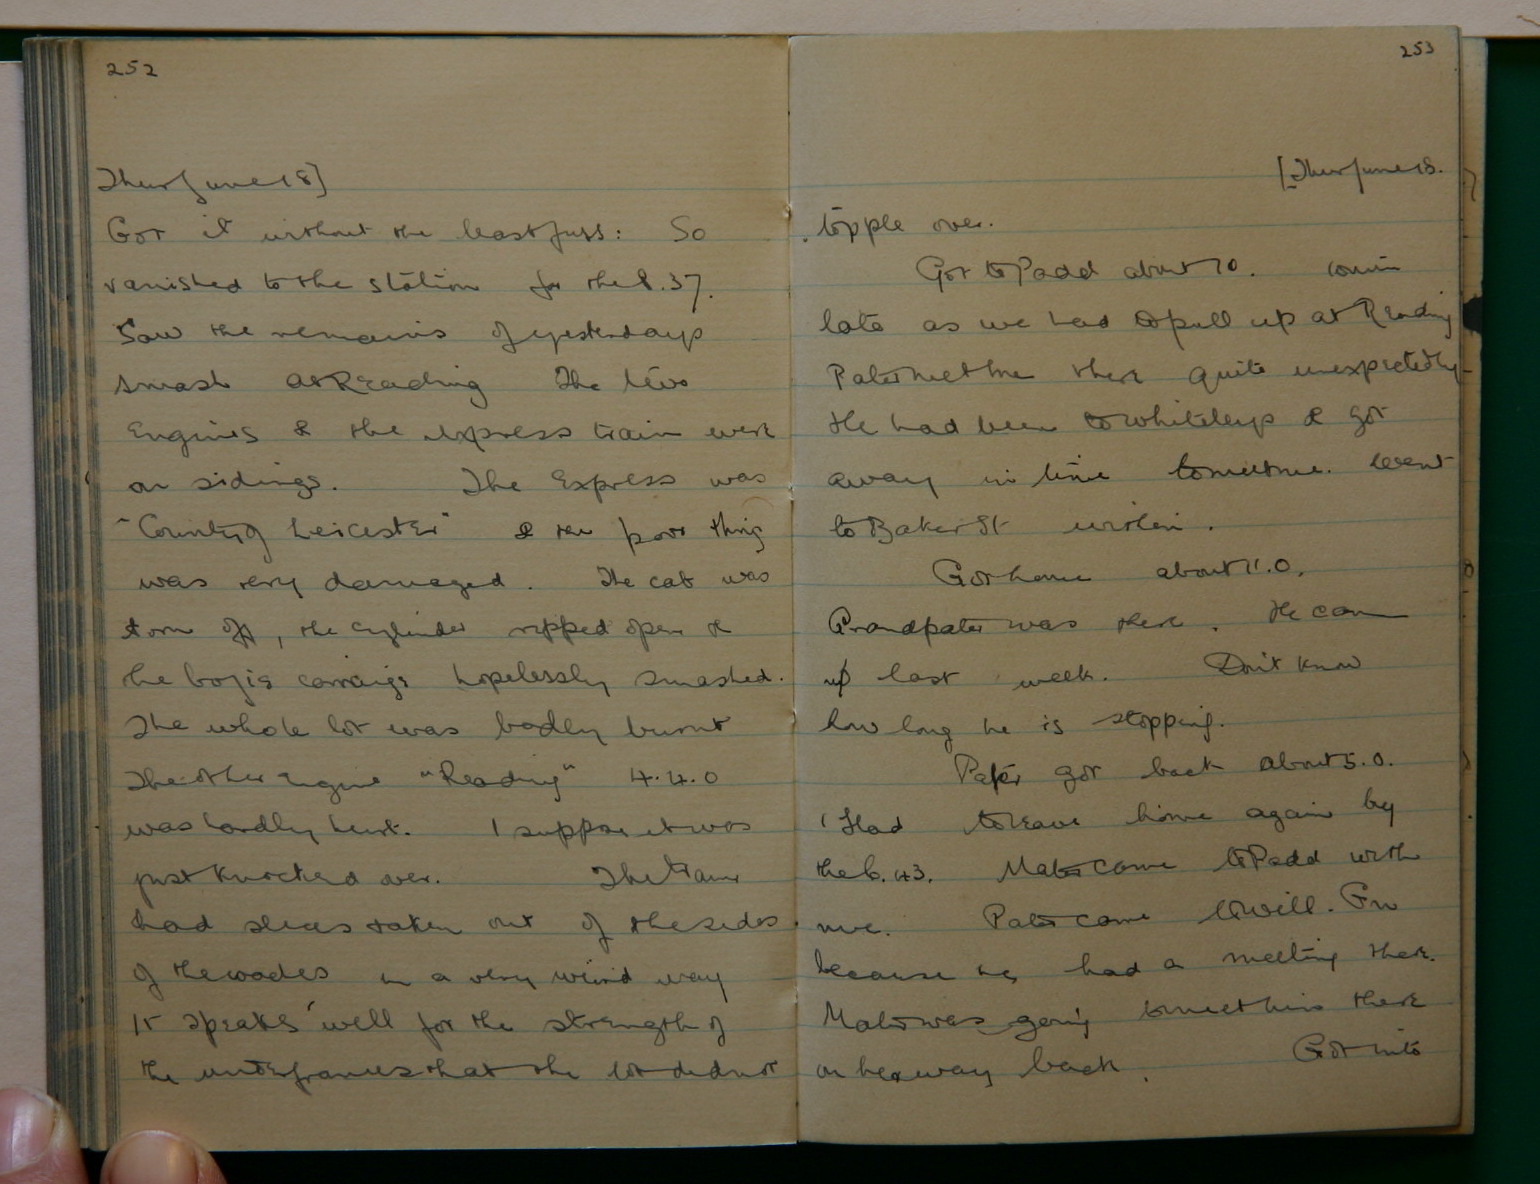 252
Thur June 18]
Got it without the least fuss: So
vanished to the station for the 8.37.
Saw the remains of yesterdays
smash at Reading The two
Engines & the express train were
on sidings. The Express was
"County of Leicester" & the poor thing
was very damaged. The cab was
torn off, the cylinder ripped open &
the bogie carriage hopelessly smashed.
The whole lot was badly burnt
The other engine "Reading" 4.4.0
was hardly hurt. I suppose it was
just knocked over. The Train
had slices taken out of the sides
of the coaches in a very weird way
It speaks well for the strength of
the underframes that the lot did not
253
[Thur June 18.
topple over.
Got to Padd about 10.
late as we had to pull up at Reading
Pater met me there quite unexpectedly
He had been to Whiteleys & got
away in time to meet me. Went
to Baker St with him.
Got home about 11.0.
Grandpater was there. He came
up last week. Don't know
how long he is stopping.
Pater got back about 5.0.
Had to leave home again by
the 6.43. Mater came to Padd with
me. Pater came to Will. Grn
because he had a meeting there.
Mater was going to meet him there
on her way back. Got into